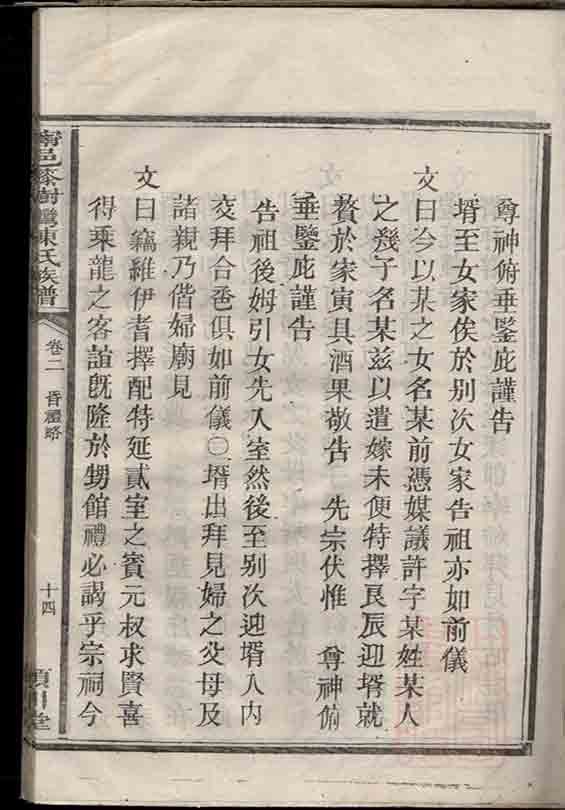 尊神俯垂鑒庇謹告
壻至女家俟於別次女家告祖亦如前儀
文曰今以某之女名某前憑媒議許字某姓某人
之幾子名某茲以遣嫁未便特擇良辰迎壻就
贅於家寅具酒果敬告 先宗伏惟 尊神俯
垂鑒庇謹告
告祖後姆引女先入室然後至別次迎壻入內
交拜合巹俱如前儀〇壻出拜見婦之父母及
諸親乃偕婦廟見
文曰竊維伊耆擇配特延貳室之賓元叔求賢喜
得乘龍之客誼旣隆於甥館禮必謁乎宗祠今
陳氏族譜
卷二 昏禮略
十四